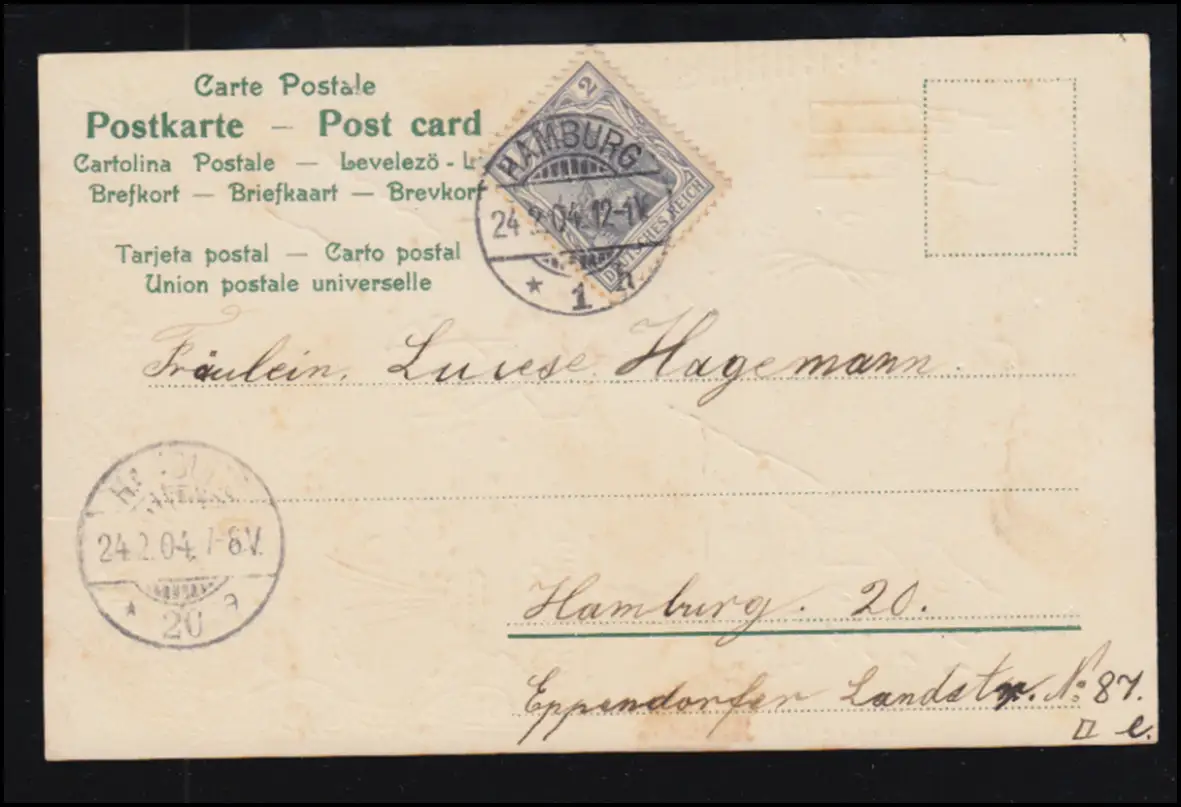 Carte Postale
Postkarte — Post card
Cartolina Postale — Levelező - L
Brefkort — Briefkaart — Brevkort
Tarjeta postal — Carto postal
Union postale universelle
2
DEUTSCHES REICH
HAMBURG
24.2.04. 12-1V.
* 1
Fräulein. Luiese Hagemann.
24.2.04. 7-8V.
* 20 a
Hamburg. 20.
Eppendorfer Landstr. No: 87.
II l.